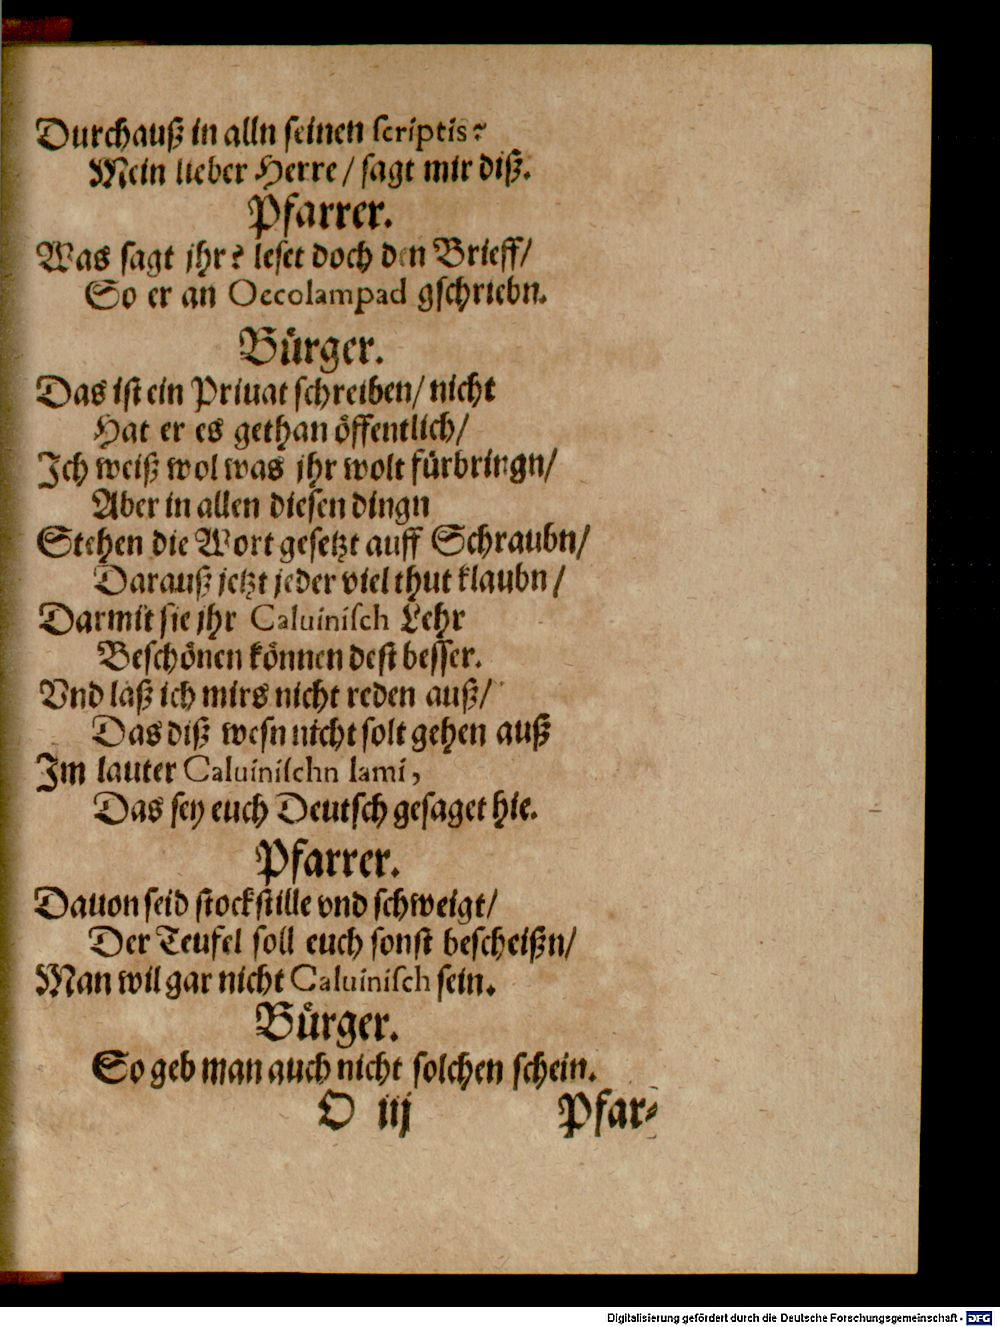 Durchauß in alln seinen scriptis?
Mein lieber Herre / sagt mir diß.
Pfarrer.
Was sagt jhr? leset doch den Brieff/
So er an Oecolampad gschriebn.
Bürger.
Das ist ein Priuat schreiben/ nicht
Hat er es gethan öffentlich/
Ich weiß wol was jhr wolt fürbringn/
Aber in allen diesen dingn
Stehen die Wort gesetzt auff Schraubn/
Darauß jetzt jeder viel thut klaubn/
Darmit sie jhr Caluinisch Lehr
Beschönen können dest besser.
Vnd laß ich mirs nicht reden auß/
Das diß wesn nicht solt gehen auß
Im lauter Caluinischn lami,
Das sey euch Deutsch gesaget hie.
Pfarrer.
Dauon seid stockstille vnd schweigt/
Der Teufel soll euch sonst bescheißn/
Man wil gar nicht Caluinisch sein.
Bürger.
So geb man auch nicht solchen schein.
O iij Pfar-
Digitalisierung gefördert durch die Deutsche Forschungsgemeinschaft - DFG